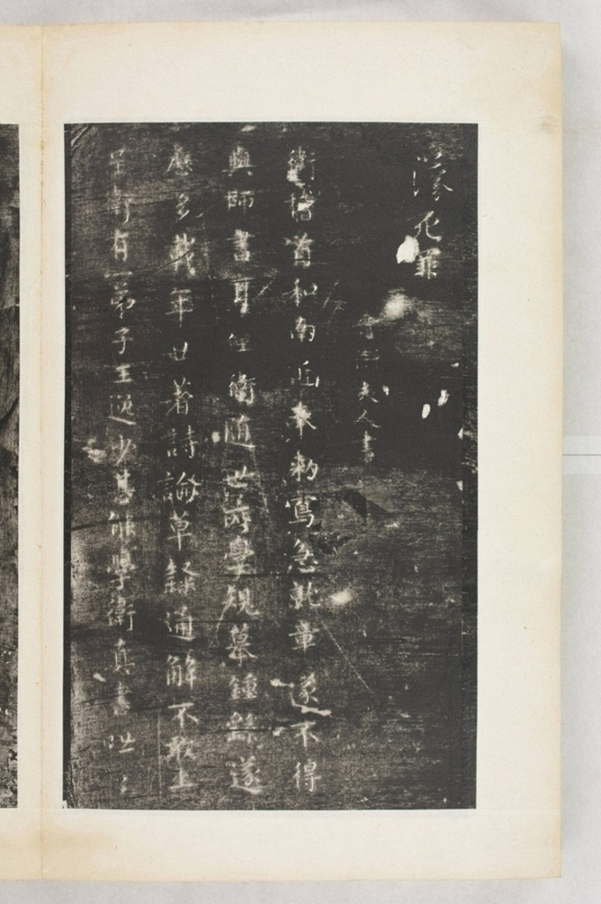 死罪
晉衛夫人書
衛稽首和南近奉勅寫急就章遂不得
與師書耳但衛隨世所學規摹鍾繇遂
歷多載年廿著詩論草隸通解不敢上
呈衛有一弟子王逸少甚能學衛真書咄々